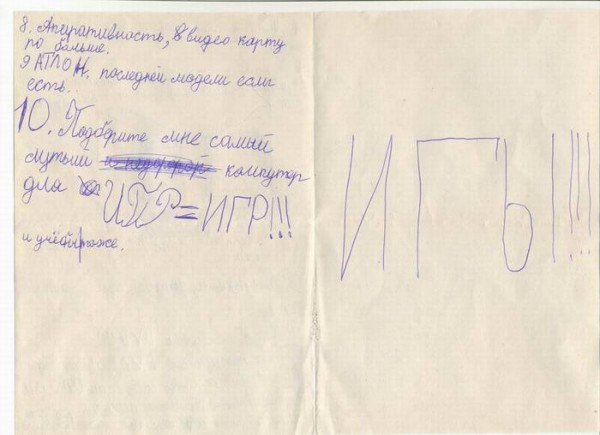 8. Аперативность, в видео карту
по больше.
9 АТЛОН. последней модели если
есть.
10. Подберите мне самый
мутый компутор
для ИГР=ИГР!!!
и учёбы тоже.
ИГРЫ!!!